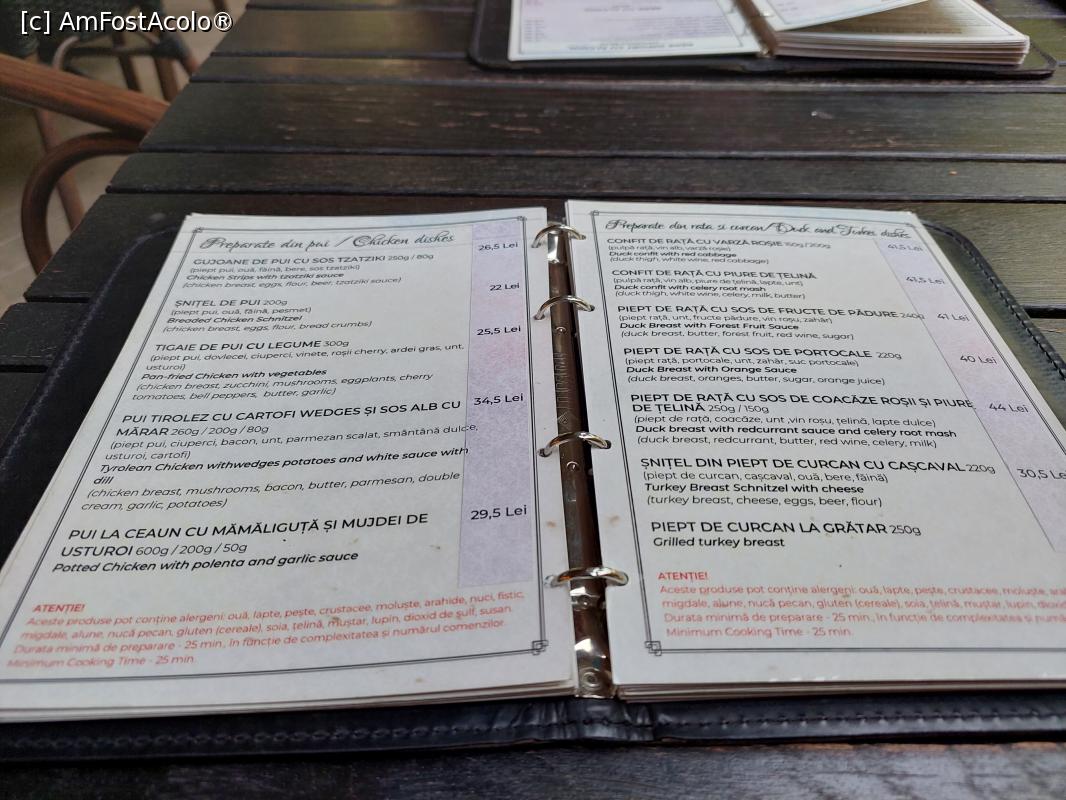 [c] AmFostAcolo®
Preparate din pui / Chicken dishes
26,5 Lei
GUJOANE DE PUI CU SOS TZATZIKI 250g / 80g
(piept pui, ouă, făină, bere, sos tzatziki)
Chicken Strips with tzatziki sauce
(chicken breast, eggs, flour, beer, tzatziki sauce)
22 Lei
ȘNIȚEL DE PUI 200g
(piept pui, ouă, făină, pesmet)
Breaded Chicken Schnitzel
(chicken breast, eggs, flour, bread crumbs)
25,5 Lei
TIGAIE DE PUI CU LEGUME 300g
(piept pui, dovlecei, ciuperci, vinete, roșii cherry, ardei gras, unt,
usturoi)
Pan-fried Chicken with vegetables
(chicken breast, zucchini, mushrooms, eggplants, cherry
tomatoes, bell peppers, butter, garlic)
34,5 Lei
PUI TIROLEZ CU CARTOFI WEDGES ȘI SOS ALB CU
MĂRAR 260g / 200g / 80g
(piept pui, ciuperci, bacon, unt, parmezan scalat, smântână dulce,
usturoi, cartofi)
Tyrolean Chicken withwedges potatoes and white sauce with
dill
(chicken breast, mushrooms, bacon, butter, parmesan, double
cream, garlic, potatoes)
29,5 Lei
PUI LA CEAUN CU MĂMĂLIGUȚĂ ȘI MUJDEI DE
USTUROI 600g / 200g / 50g
Potted Chicken with polenta and garlic sauce
ATENȚIE!
Aceste produse pot conține alergeni: ouă, lapte, pește, crustacee, moluște, arahide, nuci, fistic,
migdale, alune, nucă pecan, gluten (cereale), soia, țelină, muștar, lupin, dioxid de sulf, susan.
Durata minimă de preparare - 25 min., în funcție de complexitatea și numărul comenzilor.
Minimum Cooking Time - 25 min.
Preparate din rata si curcan/ Duck and Turkey dishes
CONFIT DE RAȚĂ CU VARZĂ ROȘIE 150g/200g
41,5 Lei
(pulpă rață, vin alb, varză roșie)
Duck confit with red cabbage
(duck thigh, white wine, red cabbage)
CONFIT DE RAȚĂ CU PIURE DE ȚELINĂ
41,5 Lei
(pulpă rață, vin alb, piure de țelină, lapte, unt)
Duck confit with celery root mash
(duck thigh, white wine, celery, milk, butter)
PIEPT DE RAȚĂ CU SOS DE FRUCTE DE PĂDURE 240g
41 Lei
(piept rață, unt, fructe pădure, vin roșu, zahăr)
Duck Breast with Forest Fruit Sauce
(duck breast, butter, forest fruit, red wine, sugar)
PIEPT DE RAȚĂ CU SOS DE PORTOCALE 220g
40 Lei
(piept rață, portocale, unt, zahăr, suc portocale)
Duck Breast with Orange Sauce
(duck breast, oranges, butter, sugar, orange juice)
PIEPT DE RAȚĂ CU SOS DE COACĂZE ROȘII ȘI PIURE
DE ȚELINĂ 250g / 150g
44 Lei
(piept de rață, coacăze, unt ,vin roșu, țelină, lapte dulce)
Duck breast with redcurrant sauce and celery root mash
(duck breast, redcurrant, butter, red wine, celery, milk)
ȘNIȚEL DIN PIEPT DE CURCAN CU CAȘCAVAL 220g
30,5 Le
(piept de curcan, cașcaval, ouă, bere, făină)
Turkey Breast Schnitzel with cheese
(turkey breast, cheese, eggs, beer, flour)
PIEPT DE CURCAN LA GRĂTAR 250g
Grilled turkey breast
ATENȚIE!
Aceste produse pot conține alergeni: ouă, lapte, pește, crustacee, moluște, ara
migdale, alune, nucă pecan, gluten (cereale), soia, țelină, muștar, lupin, dioxid
Durata minimă de preparare - 25 min., în funcție de complexitatea și numă
Minimum Cooking Time - 25 min.